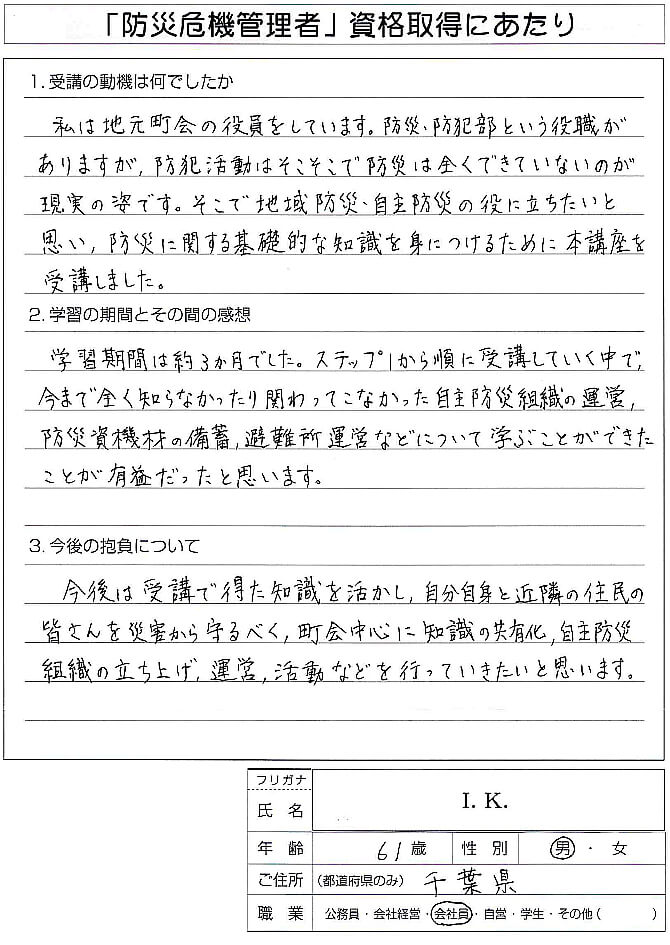 「防災危機管理者」資格取得にあたり
1. 受講の動機は何でしたか
私は地元町会の役員をしています。防災・防犯部という役職が
ありますが，防犯活動はそこそこで防災は全くできていないのが
現実の姿です。そこで地域防災・自主防災の役に立ちたいと
思い，防災に関する基礎的な知識を身につけるために本講座を
受講しました。
2. 学習の期間とその間の感想
学習期間は約3か月でした。ステップ1から順に受講していく中で，
今まで全く知らなかったり関わってこなかった自主防災組織の運営，
防災資機材の備蓄，避難所運営などについて学ぶことができた
ことが有益だったと思います。
3. 今後の抱負について
今後は受講で得た知識を活かし，自分自身と近隣の住民の
皆さんを災害から守るべく，町会中心に知識の共有化，自主防災
組織の立ち上げ，運営，活動などを行っていきたいと思います。
フリガナ
氏 名 I. K.
年 齢 61歳 性 別 男・女
ご住所 (都道府県のみ) 千葉県
職 業 公務員・会社経営・会社員・自営・学生・その他( )